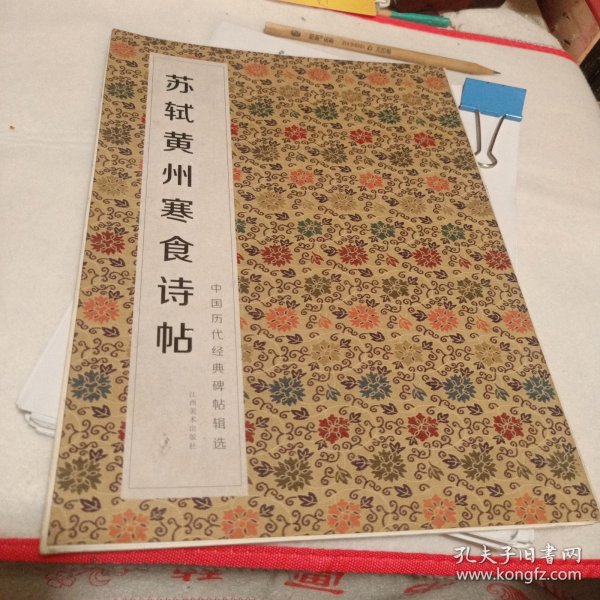 苏轼黄州寒食诗帖
中国历代经典碑帖辑选
江西美术出版社
孔夫子旧书网
www.kongfz.com